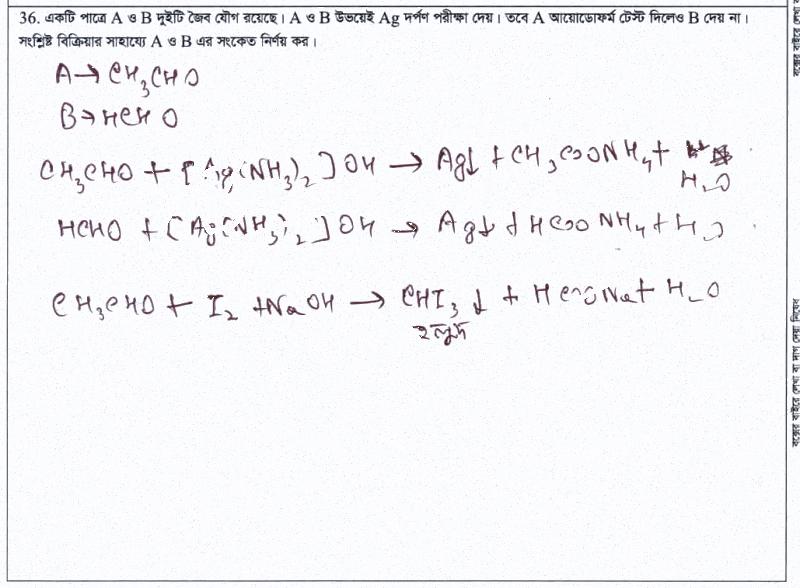 36. একটি পাত্রে A ও B দুইটি জৈব যৌগ রয়েছে। A ও B উভয়েই Ag দর্পণ পরীক্ষা দেয়। তবে A আয়োডোফর্ম টেস্ট দিলেও B দেয় না।
সংশ্লিষ্ট বিক্রিয়ার সাহায্যে A ও B এর সংকেত নির্ণয় কর।
A → CH₃CHO
B → HCHO
CH₃CHO + [Ag(NH₃)₂]OH → Ag↓ + CH₃COONH₄ +
H₂O
HCHO + [Ag(NH₃)₂]OH → Ag↓ + HCOONH₄ + H₂O
CH₃CHO + I₂ + NaOH → CHI₃↓ + HCOONa + H₂O
হলুদ